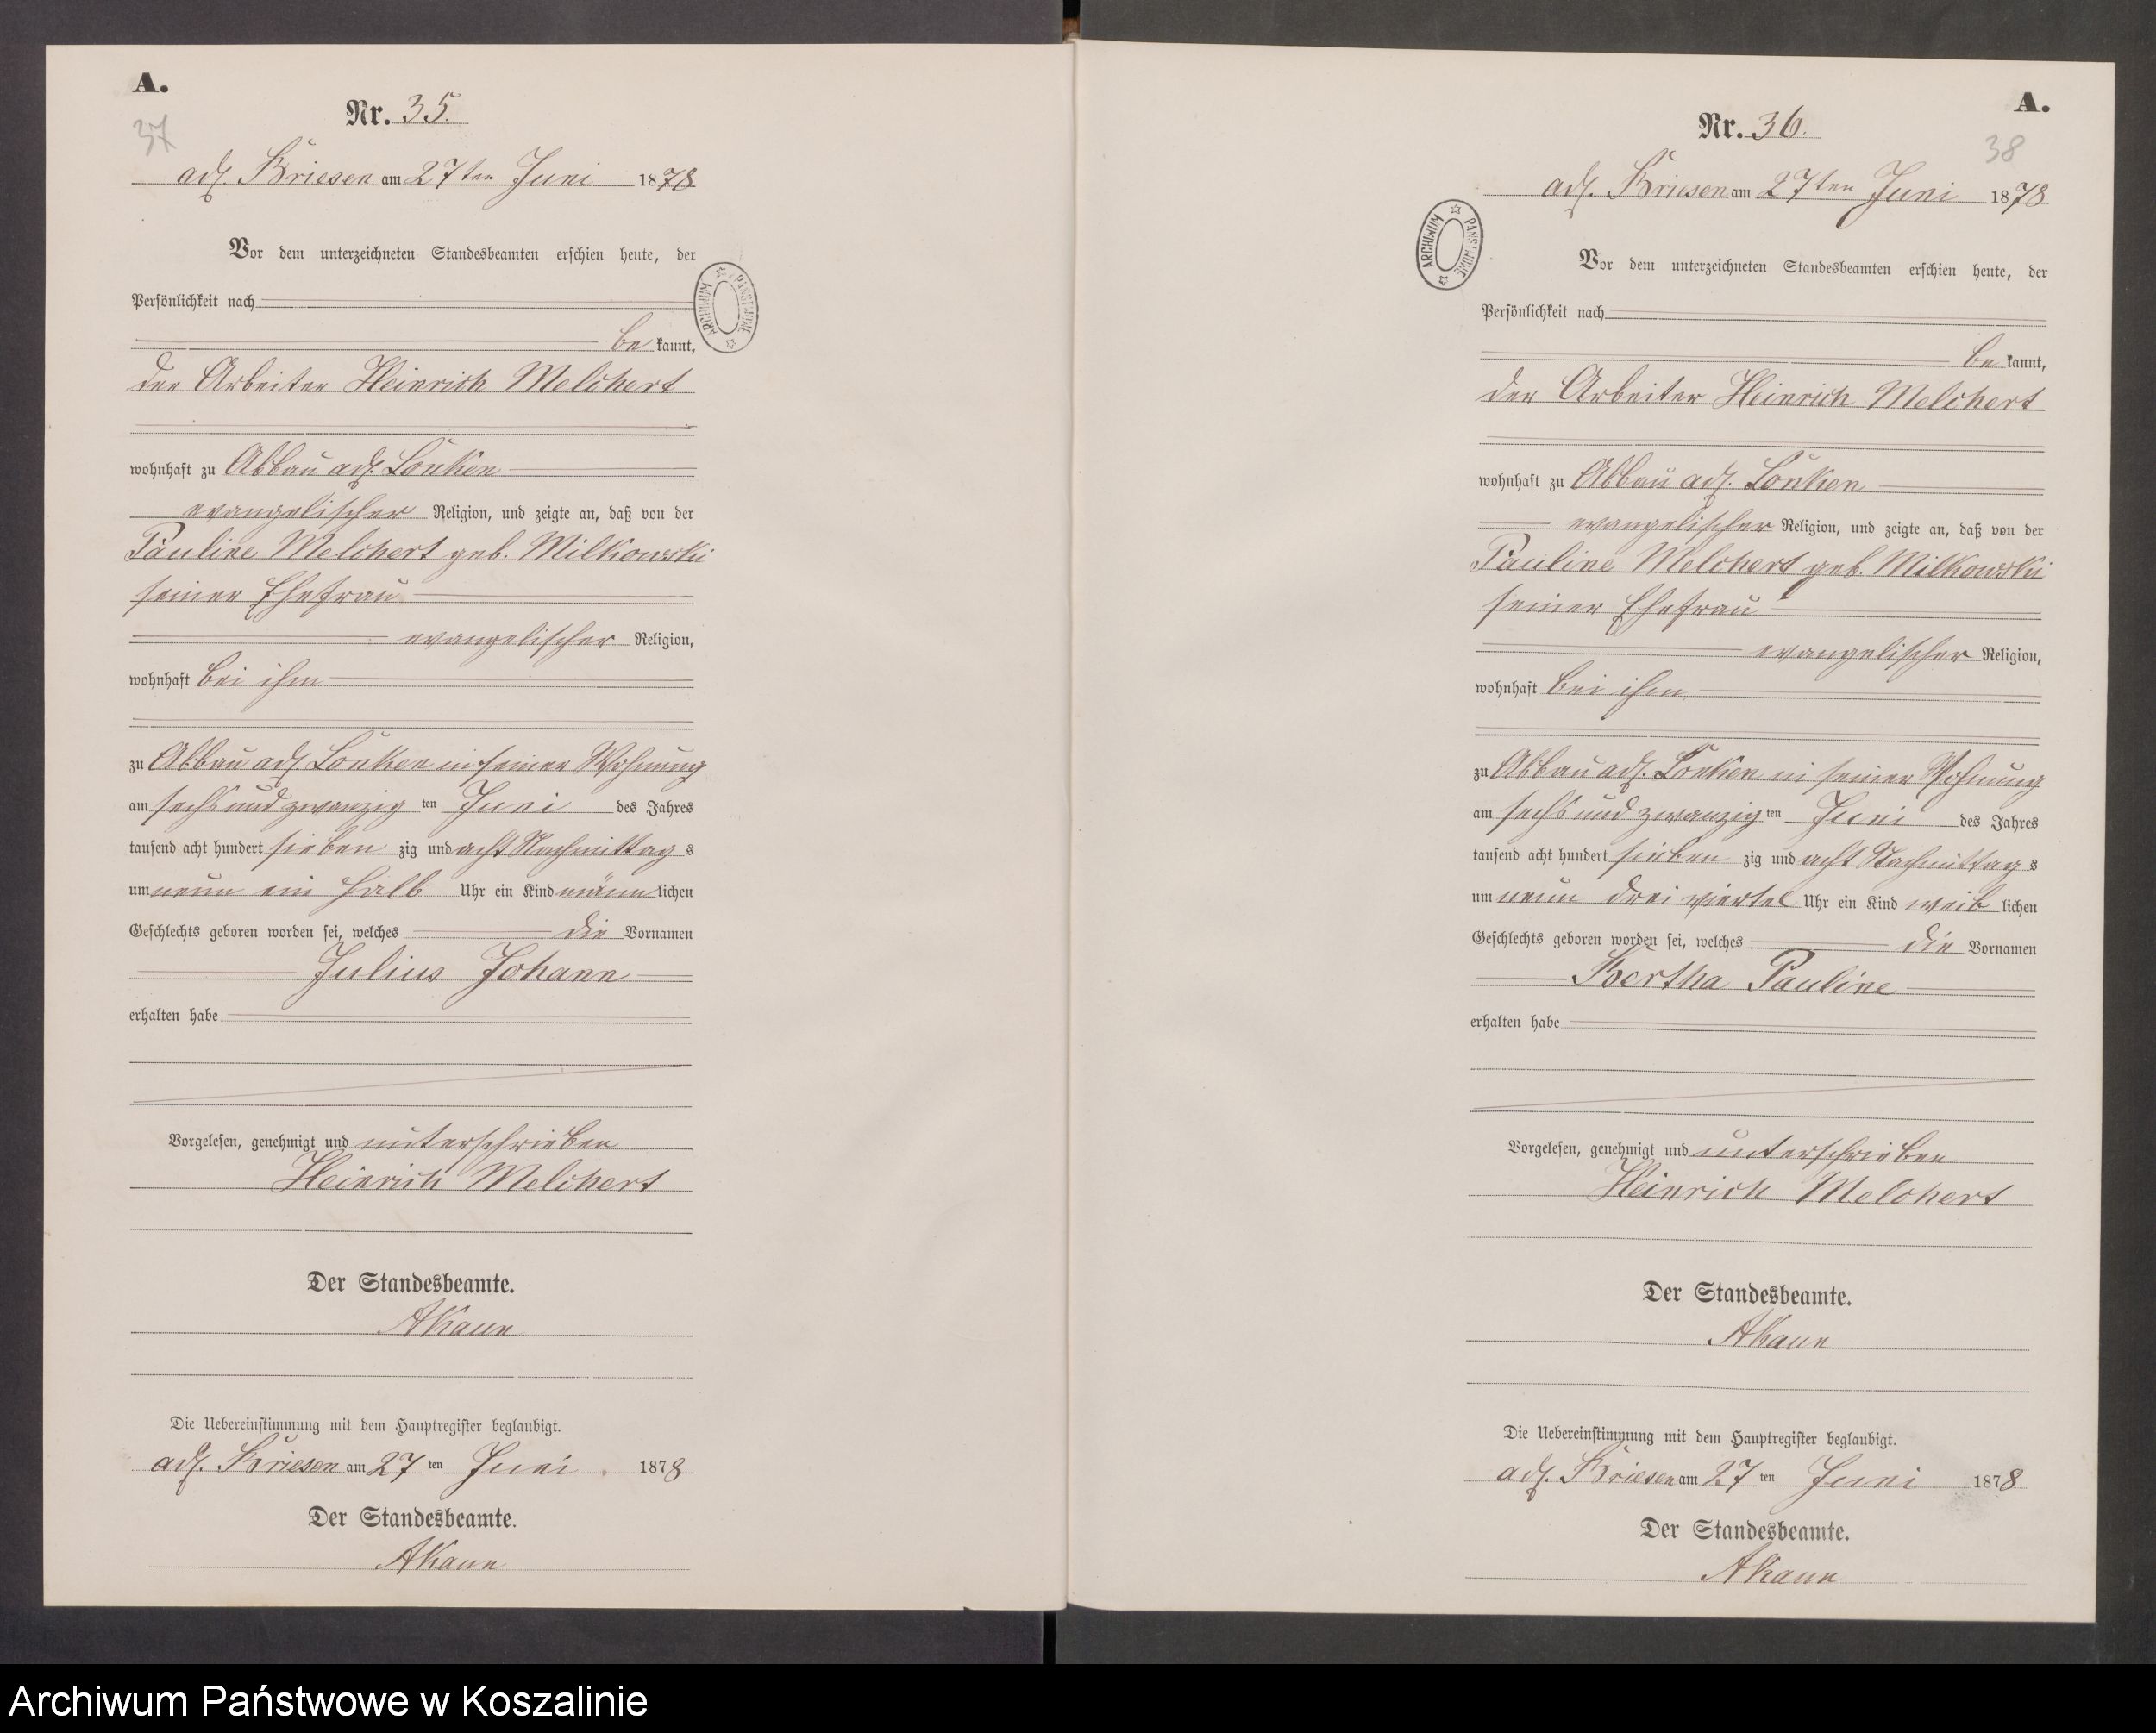 A.
Nr. 35.
37
adl. Briesen am 27ten Juni 1878
Vor dem unterzeichneten Standesbeamten erschien heute, der
Persönlichkeit nach
be kannt,
der Arbeiter Heinrich Melchert
wohnhaft zu Abbau adl. Lonken
evangelischer Religion, und zeigte an, daß von der
Pauline Melchert geb. Milkowski
seiner Ehefrau
evangelischer Religion,
wohnhaft bei ihm
zu Abbau adl. Lonken in seiner Wohnung
am sechs und zwanzig ten Juni des Jahres
tausend acht hundert sieben zig und acht Nachmittag s
um neun ein halb Uhr ein Kind männ lichen
Geschlechts geboren worden sei, welches die Vornamen
Julius Johann
erhalten habe
Vorgelesen, genehmigt und unterschrieben
Heinrich Melchert
Der Standesbeamte.
Die Uebereinstimmung mit dem Hauptregister beglaubigt.
adl. Briesen am 27 ten Juni 1878
Der Standesbeamte.
ARCHIWUM PAŃSTWOWE
A.
Nr. 36.
38
adl. Briesen am 27ten Juni 1878
Vor dem unterzeichneten Standesbeamten erschien heute, der
Persönlichkeit nach
be kannt,
der Arbeiter Heinrich Melchert
wohnhaft zu Abbau adl. Lonken
evangelischer Religion, und zeigte an, daß von der
Pauline Melchert geb. Milkowski
seiner Ehefrau
evangelischer Religion,
wohnhaft bei ihm
zu Abbau adl. Lonken in seiner Wohnung
am sechs und zwanzig ten Juni des Jahres
tausend acht hundert sieben zig und acht Nachmittag s
um neun drei viertel Uhr ein Kind weib lichen
Geschlechts geboren worden sei, welches die Vornamen
Bertha Pauline
erhalten habe
Vorgelesen, genehmigt und unterschrieben
Heinrich Melchert
Der Standesbeamte.
Die Uebereinstimmung mit dem Hauptregister beglaubigt.
adl. Briesen am 27 ten Juni 1878
Der Standesbeamte.
ARCHIWUM PAŃSTWOWE
Archiwum Państwowe w Koszalinie